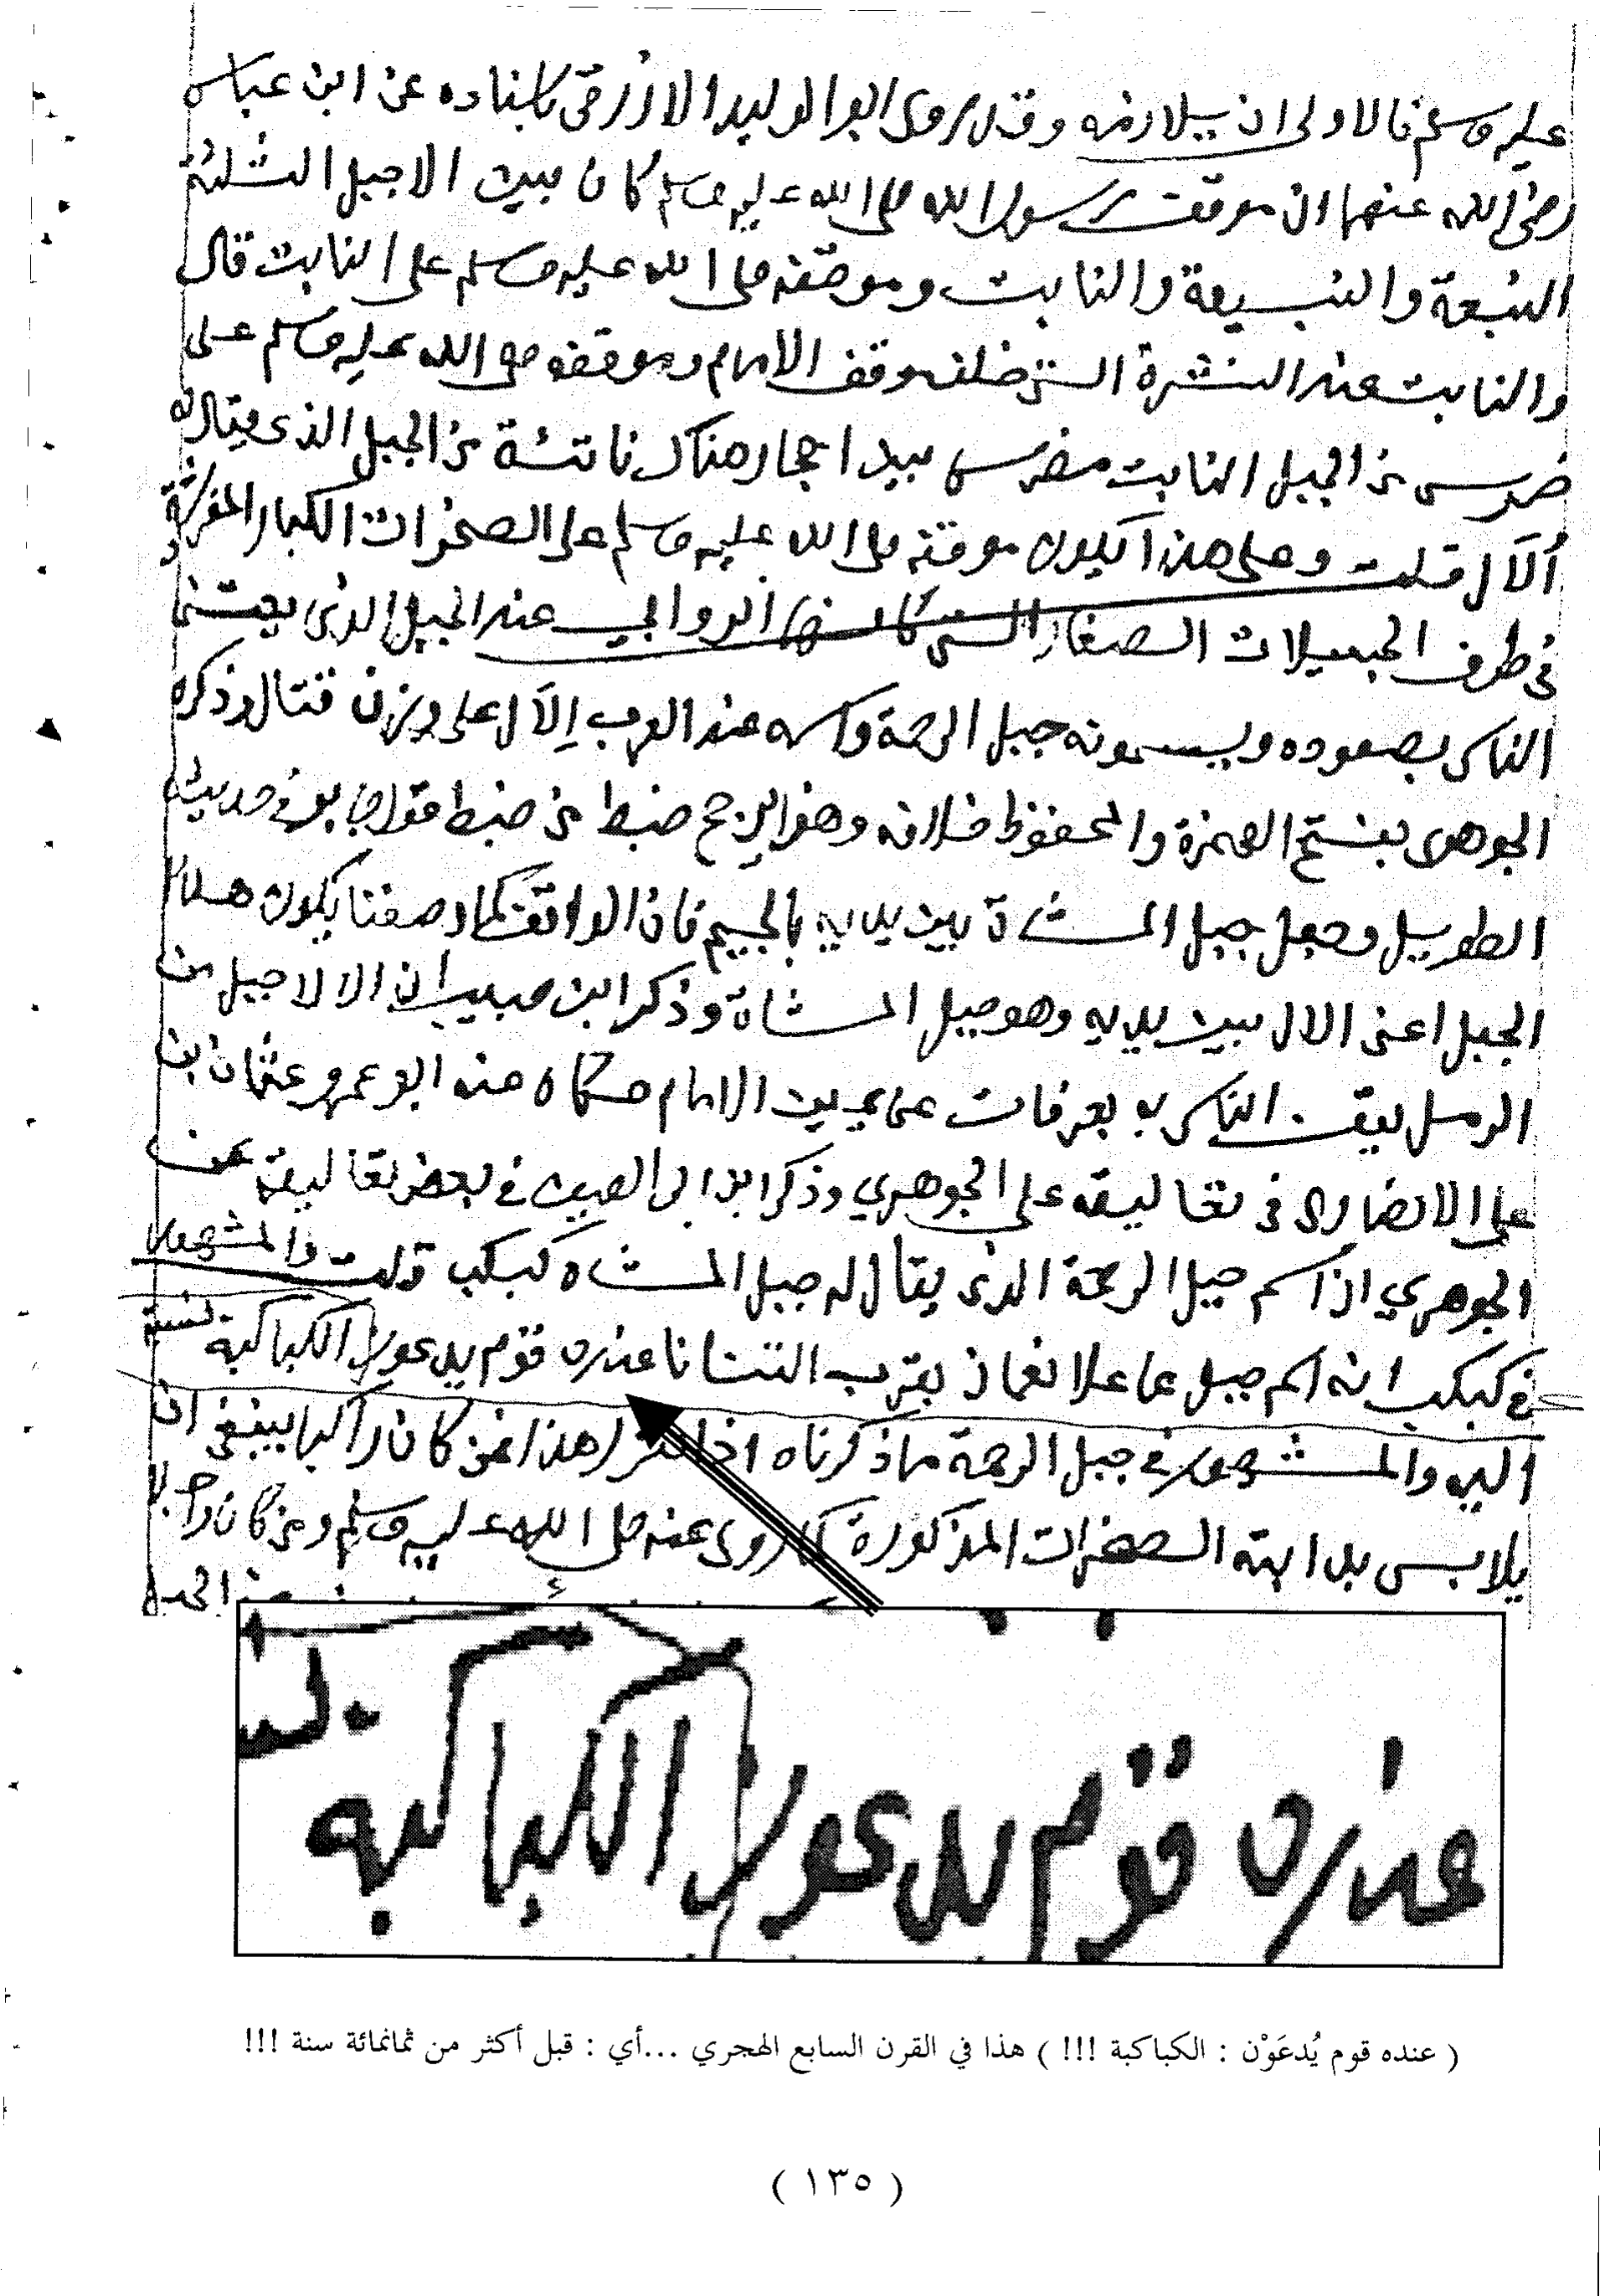 عليه وسلم فالاولى ان يلازمه وقد روى ابو الوليد الازرقى باسناده عن ابن عباس
رضى الله عنهما ان موقف رسول الله صلى الله عليه وسلم كان بين الاجبل الثلثة
النبعة والنبيعة والنابت وموقفه صلى الله عليه وسلم على النابت قال
والنابت عند النشزة التى خلف موقف الامام وموقفه صلى الله عليه وسلم على
ضرس من الجبل النابت مضرس بين احجار هناك ناتئة من الجبل الذى يقال له
ألآل قلت وعلى هذا يكون موقفه صلى الله عليه وسلم على الصخرات الكبار المفترشة
فى طرف الجبيلات الصغار التى كانها الروابي عند الجبل الذى يعتنى
الناس بصعوده ويسمونه جبل الرحمة واسمه عند العرب إلآل على وزن فعال وذكره
الجوهرى بفتح الهمزة والمحفوظ خلافه وهذا يرجح ضبط من ضبط قول جابر فى حديثه
الطويل وجعل جبل المشاة بين يديه بالجيم فان الواقف كما وصفنا يكون هذا
الجبل اعنى الال بين يديه وهو جبل المشاة وذكر ابن حبيب ان الال جبل من
الرمل يقف الناس به بعرفات عن يمين الامام حكاه عنه ابو عمرو عثمان ابن
على الانصارى فى تعاليقه على الجوهري وذكر ابن ابى الصيف فى بعض تعاليقه عن
الجوهري ان اسم جبل الرحمة الذى يقال له جبل المشاه كبكب قلت والمشهور
فى كبكب انه اسم جبل باعلا نعمان بقرب الثنايا عنده قوم يدعون الكباكبة نسبة
اليه والمشهور فى جبل الرحمة ما ذكرناه اذا تقرر هذا فمن كان راكبا ينبغى ان
يلابس بدابته الصخرات المذكورة كما روى عنه صلى الله عليه وسلم ومن كان راجلا
عنده قوم يدعون الكباكبة
( عنده قوم يُدعَوْن : الكباكبة !!! ) هذا في القرن السابع الهجري ...أي : قبل أكثر من ثمانمائة سنة !!!
( ١٣٥ )